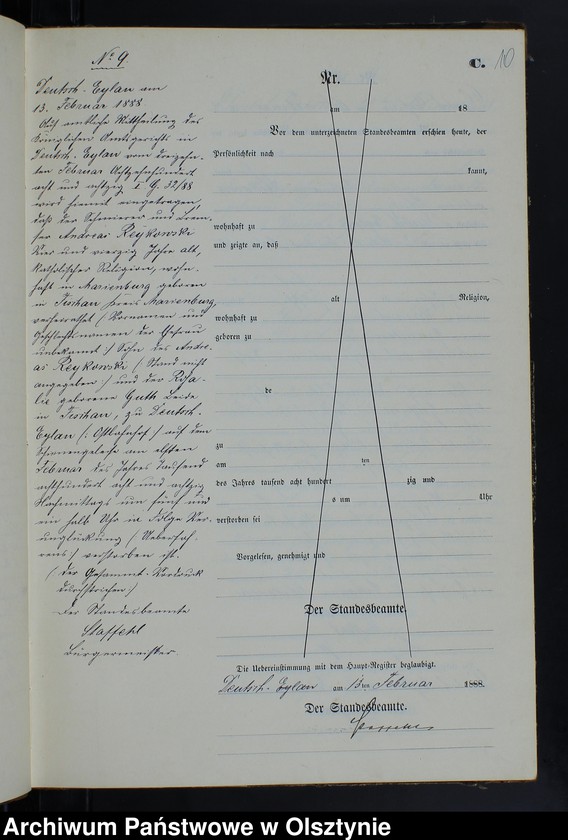 No 9.
Deutsch-Eylau am
13. Februar 1888
Auf amtliche Mittheilung des
Königlichen Amtsgerichts in
Deutsch-Eylau vom dreizehn-
ten Februar Achtzehnhundert
acht und achtzig I G. 32/88
wird hiermit eingetragen,
daß der Schmierer und Brem-
ser Andreas Reykowski
vier und vierzig Jahre alt,
katholischer Religion, wohn-
haft in Marienburg geboren
in Kreis Marienburg,
verheirathet (Vornamen und
Geschlechtsnamen der Ehefrau
unbekannt) Sohn des Andre-
as Reykowski (Stand nicht
angegeben) und der Rosa-
lie geborene Guth Beide
in, zu Deutsch-
Eylau (: Ostbahnhof :) auf dem
Schienengeleise am elften
Februar des Jahres Tausend
achthundert acht und achtzig
Nachmittags um fünf und
ein halb Uhr in Folge Ver-
unglückung (Ueberfah-
rens:) verstorben ist.
(der Gesammt-Vordruck
durchstrichen)
Der Standesbeamte
Staffehl
Bürgermeister.
C. 10
Nr.
am 18
Vor dem unterzeichneten Standesbeamten erschien heute, der
Persönlichkeit nach
kannt,
wohnhaft zu
und zeigte an, daß
alt Religion,
wohnhaft zu
geboren zu
de
zu
am ten
des Jahres tausend acht hundert zig und
s um Uhr
verstorben sei
Vorgelesen, genehmigt und
Der Standesbeamte.
Die Uebereinstimmung mit dem Haupt-Register beglaubigt.
Deutsch-Eylau am 13ten Februar 1888.
Der Standesbeamte.
Staffehl
Archiwum Państwowe w Olsztynie